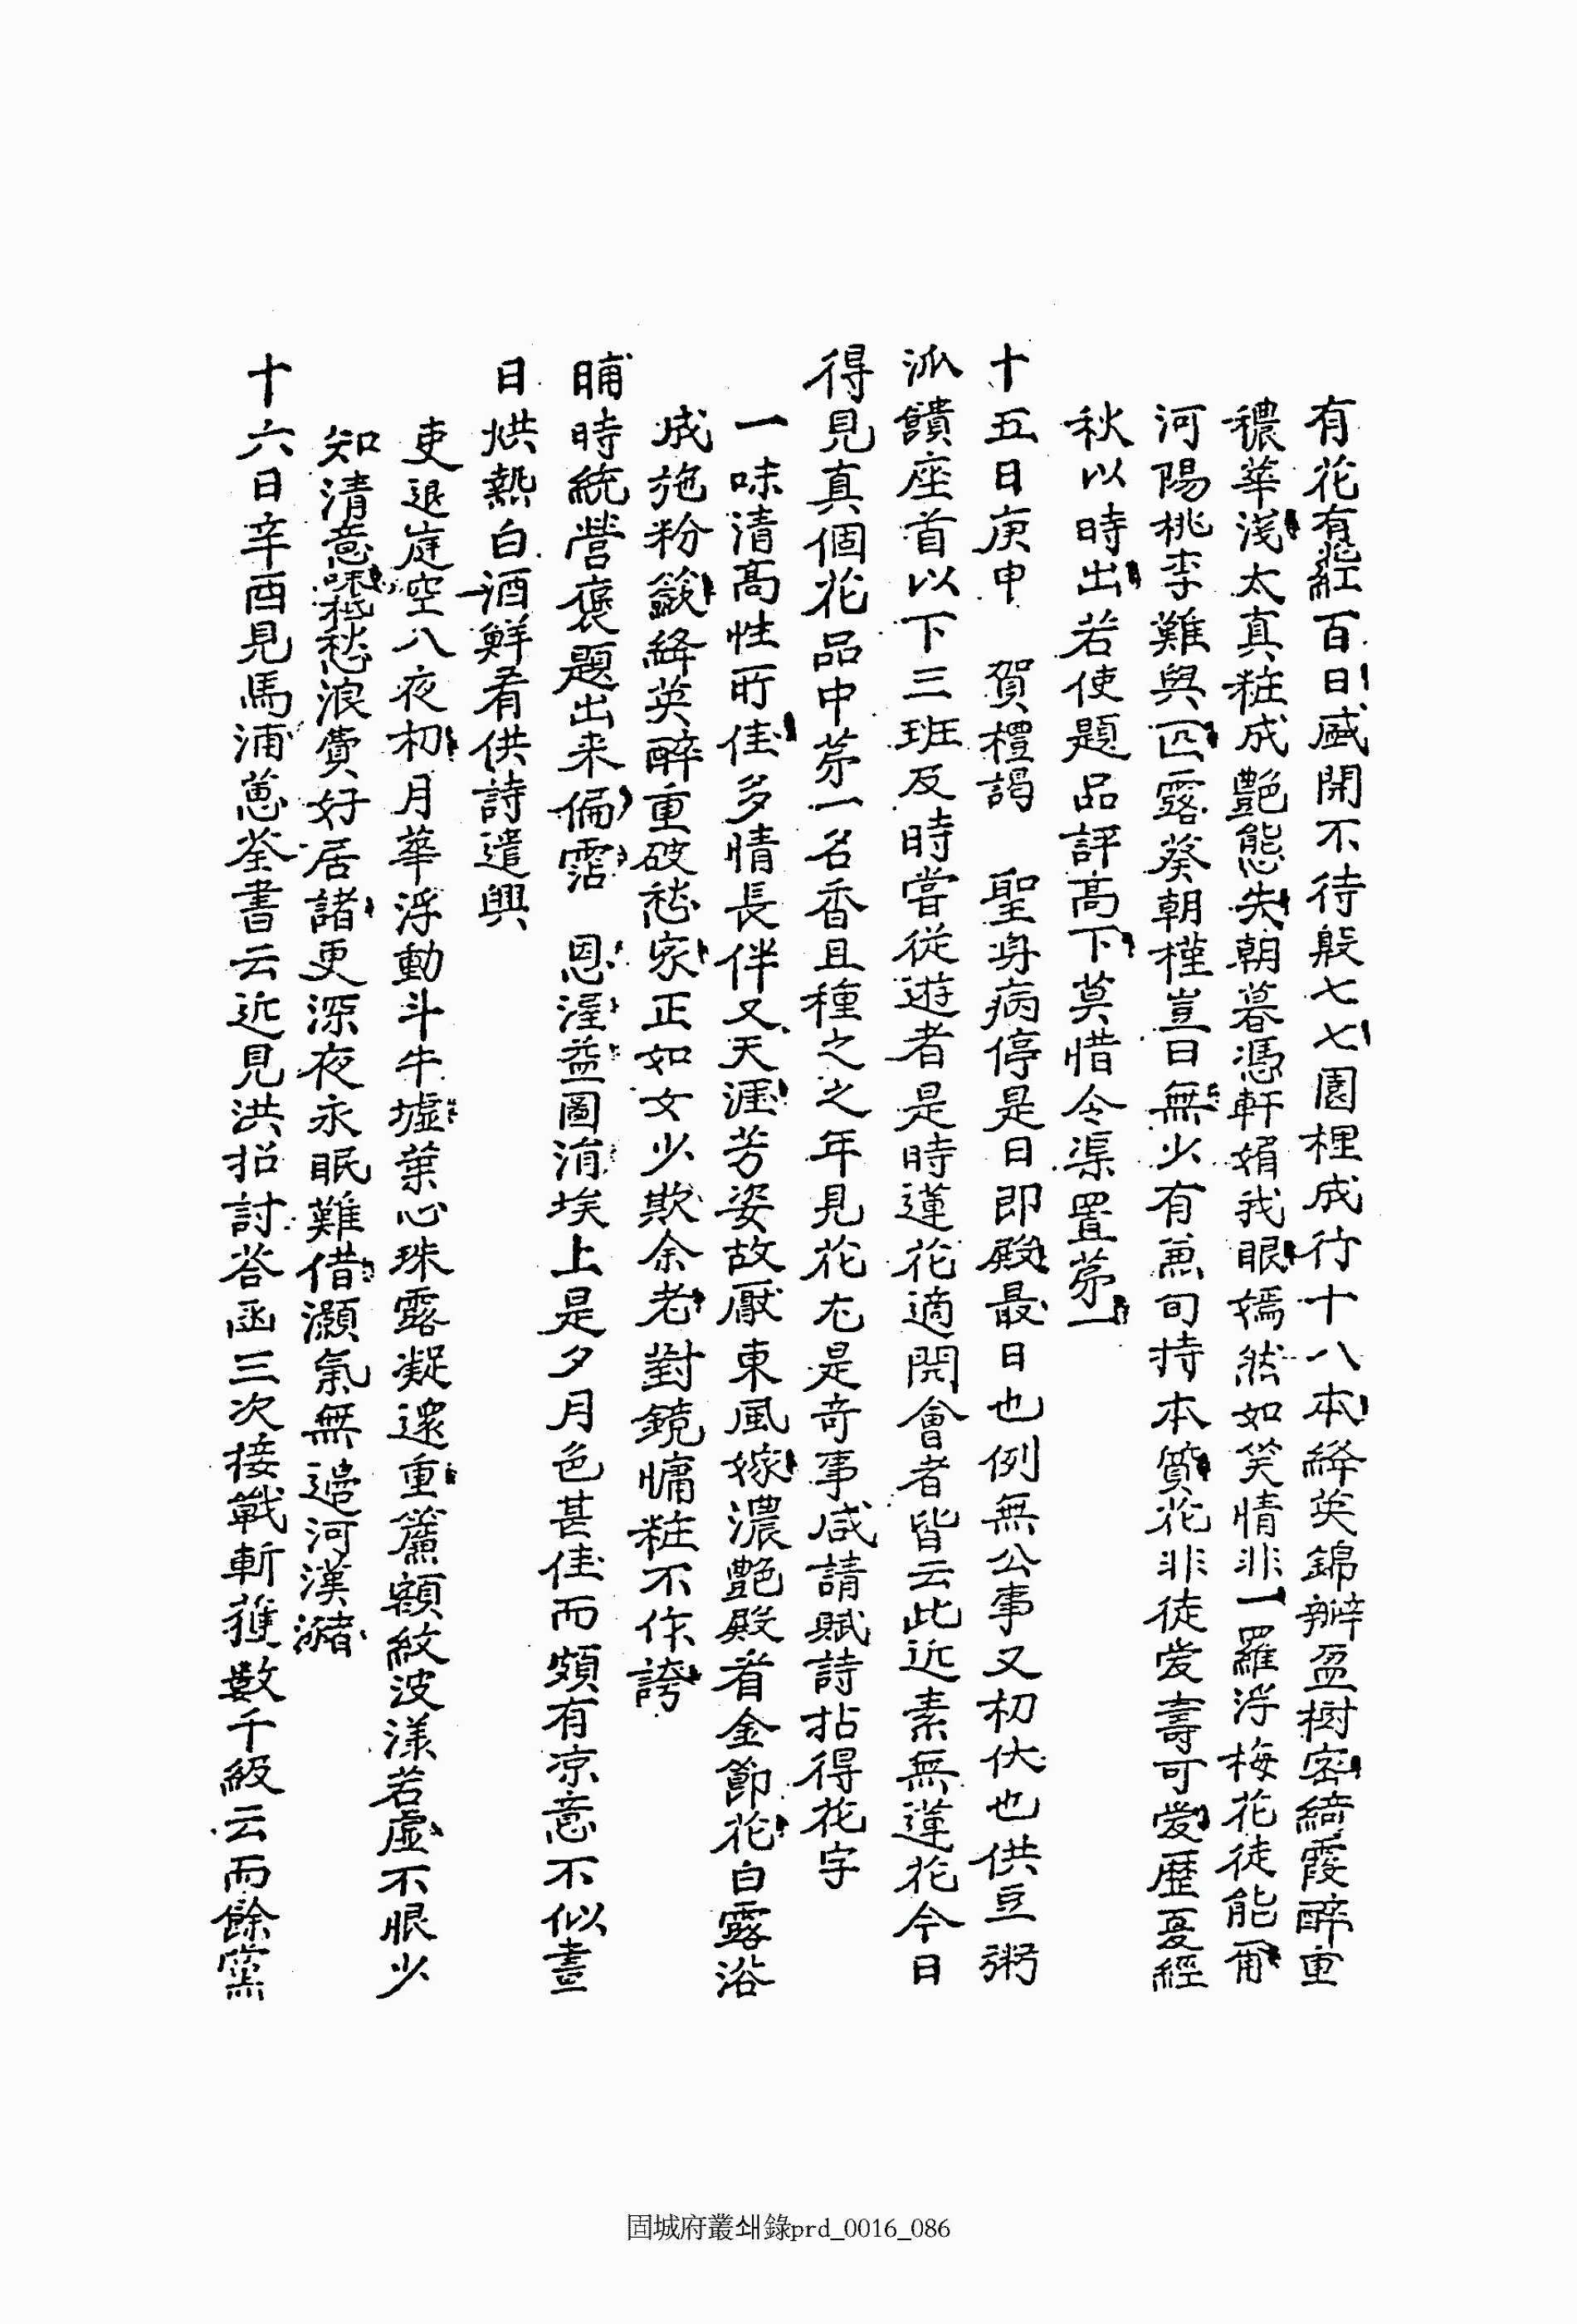 有花有花紅百日盛開不待殷七七園裡成行十八本絳英錦瓣盈樹密綺霞醉重
穠華淺太真粧成艶態失朝暮憑軒媚我眼嫣然如笑情非一羅浮梅花徒能爾
河陽桃李難與匹露葵朝槿豈曰無少有兼旬持本質花非徒愛壽可愛歷夏經
秋以時出若使題品評高下莫惜令渠置苐一
十五日庚申 賀禮謁 聖身病停是日即殿最日也例無公事又初伏也供豆粥
派饋座首以下三班及時嘗從遊者是時蓮花適開會者皆云此近素無蓮花今日
得見真個花品中苐一名香且種之之年見花尤是奇事咸請賦詩拈得花字
一味清高性所佳多情長伴又天涯芳姿故厭東風嫁濃艶殿看金節花白露浴
成施粉籢絳英醉重破愁家正如女少欺余老對鏡慵粧不作誇
晡時統營褒題出来偏霑 恩渥益圖涓埃上是夕月色甚佳而頗有凉意不似晝
日烘熱白酒鮮肴供詩遣興
吏退庭空八夜初月華浮動斗牛墟葉心珠露凝還重簾額紋波漾若虛不眠少
知清意味愁浪費好居諸更深夜永眠難借灝氣無邊河漢瀦
十六日辛酉見馬浦蔥荃書云近見洪招討答函三次接戰斬獲數千級云而餘黨
固城府叢쇄錄prd_0016_086